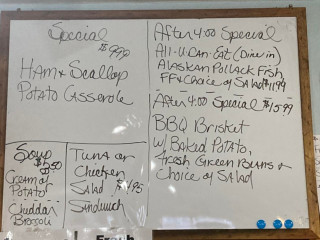 Special
$9.99
Ham & Scallop
Potato Casserole
Soup
$3.50
Cream of
Potato
Cheddar
Broccoli
Tuna or
Chicken
Salad $4.95
Sandwich
After 4:00 Special
All-U-Can-Eat (Dine in)
Alaskan Pollack Fish,
FF & Choice of Salad $11.99
After 4:00 Special $15.99
BBQ Brisket
w/ Baked Potato,
Fresh Green Beans &
Choice of Salad
Fresh